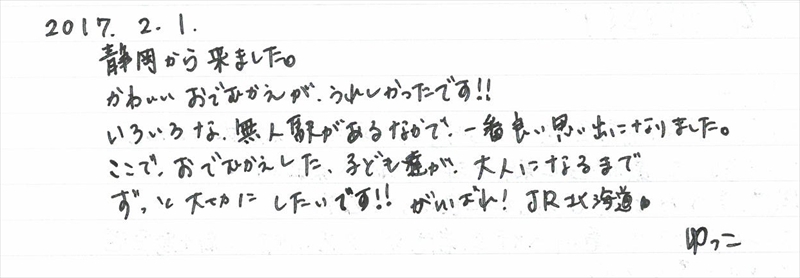 2017. 2. 1.
静岡から来ました。
かわいい おでむかえが、うれしかったです!!
いろいろな、無人駅があるなかで、一番良い思い出になりました。
ここで、おでむかえした、子ども達が、大人になるまで
ずっと大切に したいです!! がんばれ! JR北海道。
ゆっこ